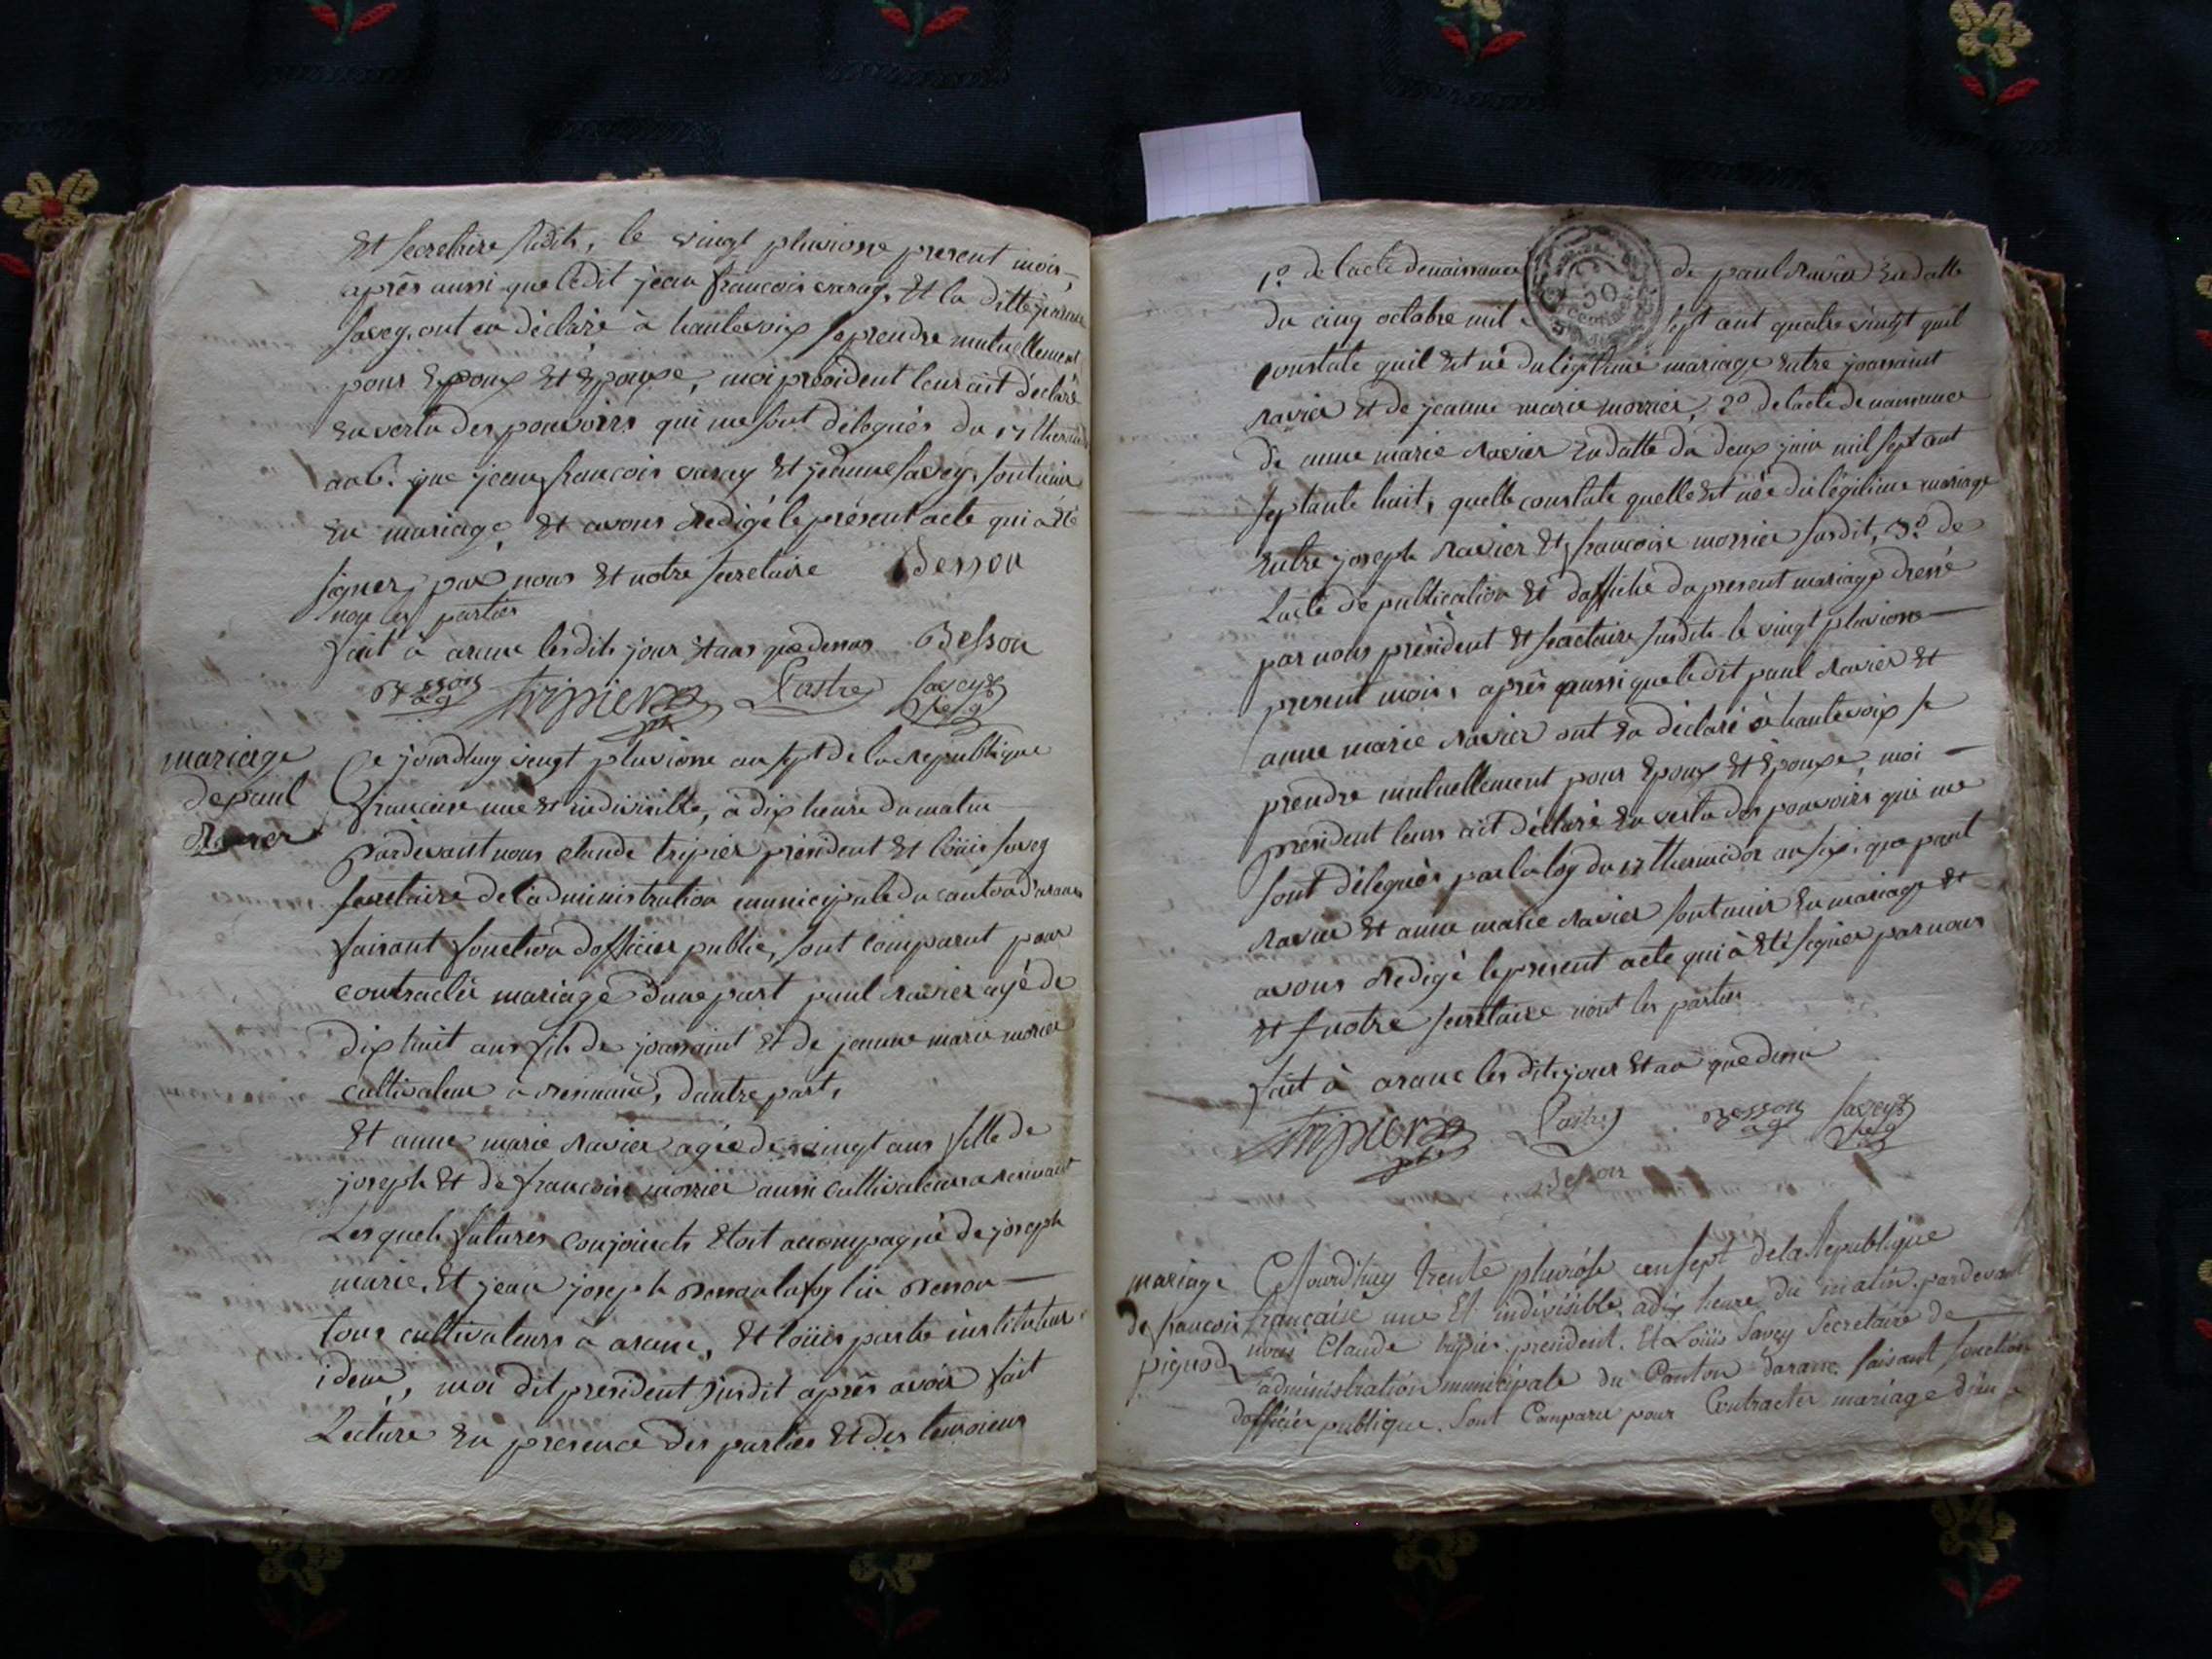 Et secretaire sudits, le vingt pluviose present mois,
après aussi que ledit jean francois varay, Et la ditte jeanne
savey, ont en déclaré à hautevoix se prendre mutuellement
pour Epoux Et Epouse, moi président leurs ait déclaré
En vertu des pouvoirs qui me sont délégués du 17 thermidor
an 6. que jean francois varay Et jeanne savey, sont unir
En mariage, Et avons Redigé le présent acte qui a été
signer, par nous Et notre secretaire Besson
non les parties
fait à aranc lesdits jour Et ans que dessus Besson
Besson ag Tripier pdt Pastre savey secg
mariage
de paul
Ravier
Ce jourdhuy vingt pluviose an sept de la Republique
francaise une Et indivisible, à dix heure du matin
Pardevant nous claude tripier président Et loüis savey
secretaire de l'administration municipale du canton d'aranc
faisant fonction dofficier public, sont comparut pour
contracter mariage dune part paul Ravier agé de
dix huit ans fils de joansaint Et de jeanne marie morrier
cultivateur à Resinand, dautre part,
Et anne marie Ravier agée de vingt ans fille de
joseph Et de francoise morrier aussi cultivateurs a resinant
Lesquels futures conjoincts Etoit accompagné de joseph
marie, Et jean joseph Besson Besson
tous cultivateurs à aranc, Et loüis pastre instituteur
idem, moi dit president susdit après avoir fait
Lecture En presence des parties Et des temoiens
1º de lacte de naissance de paul Ravier En datte
du cinq octobre mil sept cent quatre vingt quil
constate quil Est né du légitime mariage Entre joansaint
ravier Et de jeanne marie morrier, 2º de lacte de naissance
de anne marie Ravier En datte du deux juin mil sept cent
septante huit, quelle constate quelle Est née du légitime mariage
Entre joseph Ravier Et francoise morrier susdit, 3º de
Lacte de publication Et daffiche du present mariage dressé
par nous président Et secretaire susdits le vingt pluviose
present mois, après aussi que ledit paul Ravier Et
anne marie Ravier ont En déclaré à hautevoix se
prendre mutuellement pour Epoux Et Epouse, moi
president leurs ait déclaré En vertu des pouvoirs qui me
sont délégués par la loy du 17 thermidor an six, que paul
Ravier Et anne marie Ravier sont unir En mariage Et
avons Redigé le present acte qui à Eté signer par nous
Et notre secretaire nont les parties
fait à aranc lesdits jour Et an que dessu
Tripier pdt Pastre Besson ag savey secg
Besson
mariage
de francois
pignod
Cejourd'huy trente pluviôse an sept de la Republique
française une Et indivisible, a dix heure du matin. pardevant
nous Claude tripier. president. Et Loüis Savey Secretaire de
l'administration municipale du Canton daranc faisant fonction
dofficier publique. Sont Comparu pour Contracter mariage d'un